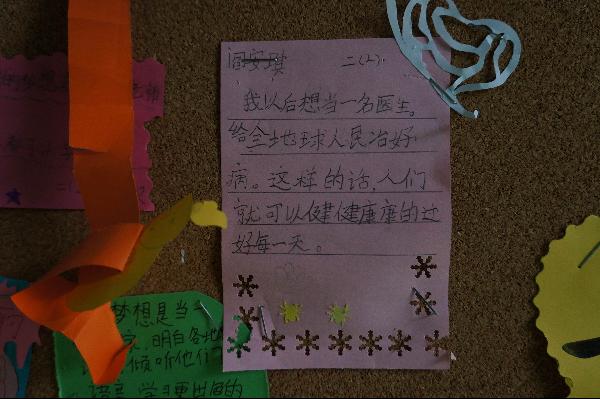 安琪 二(2)
我以后想当一名医生。
给全地球人民治好
病。这样的话,人们
就可以健健康康的过
好每一天。
梦想
老师
梦想是当
明白各地
倾听他们
语言